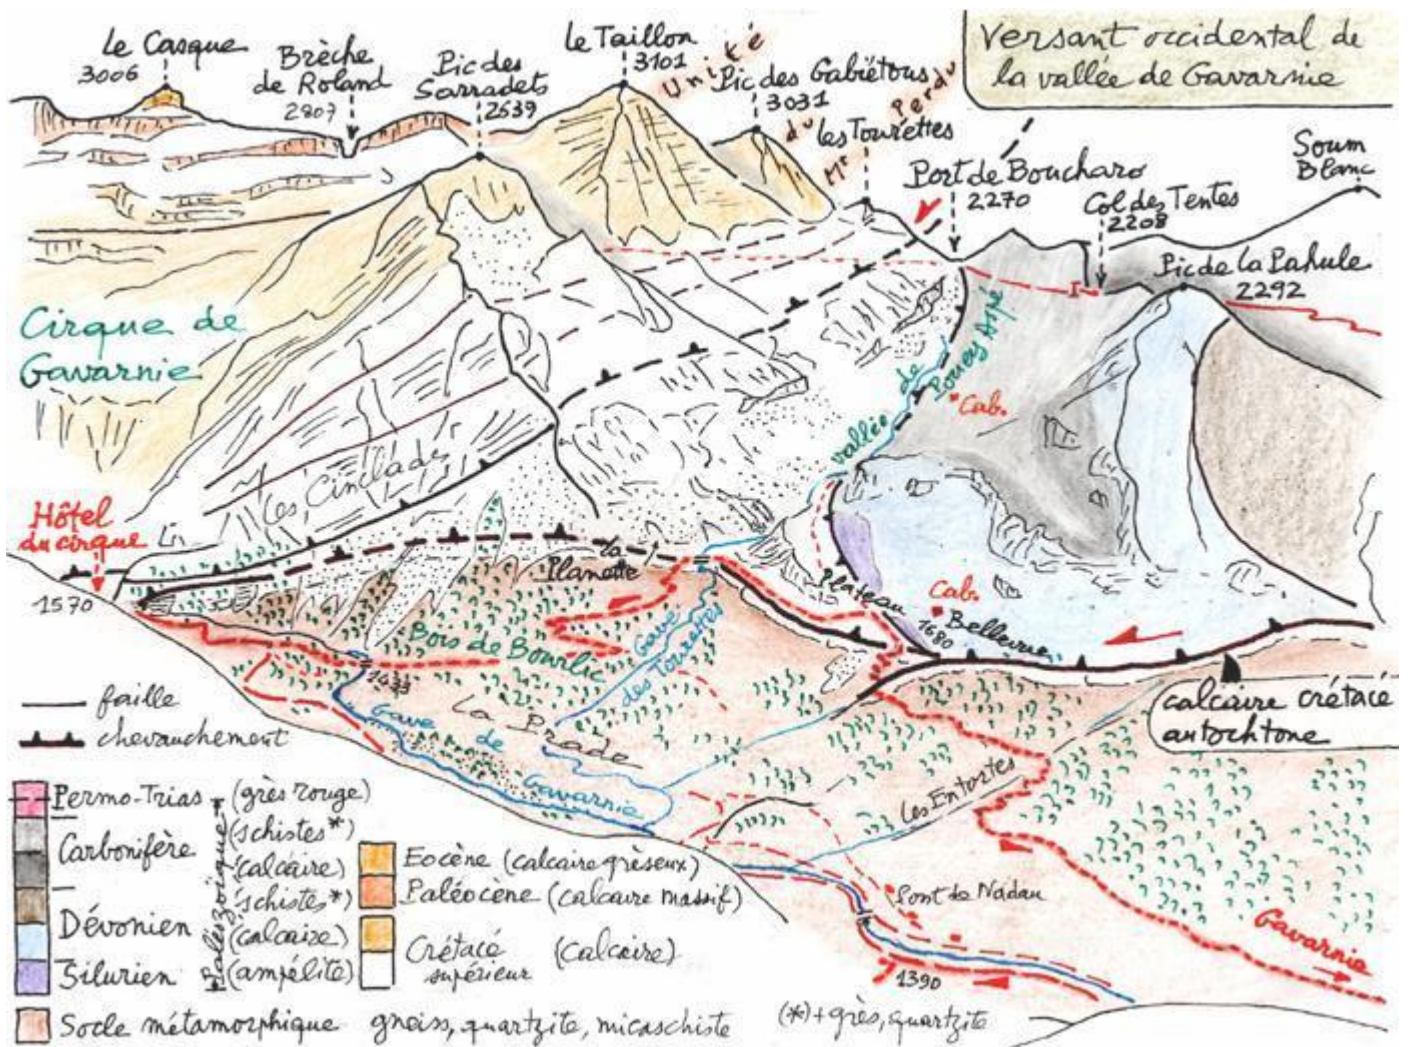 Versant occidental de
la vallée de Gavarnie
Le Casque
3006
Brèche
de Roland
2807
Pic des
Sarradets
2639
Le Taillon
3101
Unité
du
Mt
Perdu
Pic des Gabiétous
3031
les Tourettes
Port de Boucharo
2270
Col des Tentes
2208
Soum
Blanc
Pic de La Pahule
2292
Cirque de
Gavarnie
vallée
de
Pouey Aspé
Cab.
Les Cinclades
Hôtel
du cirque
1570
la
Planette
Plateau
Bellevue
1680
Cab.
Bois de Bourlic
1433
Gave
des Tourettes
La Prade
Gave de
Gavarnie
calcaire crétacé
autochtone
Les Entortes
Pont de Nadau
1390
Gavarnie
faille
chevauchement
Permo-Trias (grès rouge)
Carbonifère (schistes*)
(calcaire)
Dévonien (schistes*)
(calcaire)
Silurien (ampélite)
Paléozoïque
Eocène (calcaire grèseux)
Paléocène (calcaire massif)
Crétacé
supérieur (calcaire)
Socle métamorphique gneiss, quartzite, micaschiste
(*)+grès, quartzite